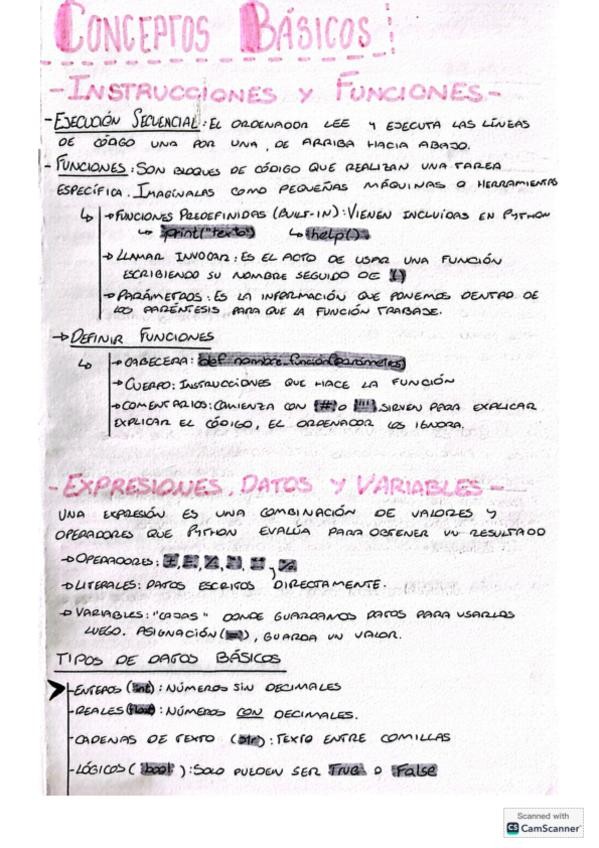 CONCEPTOS BÁSICOS:
- INSTRUCCIONES Y FUNCIONES -
- EJECUCIÓN SECUENCIAL: EL ORDENADOR LEE Y EJECUTA LAS LÍNEAS
DE CÓDIGO UNA POR UNA, DE ARRIBA HACIA ABAJO.
- FUNCIONES: SON BLOQUES DE CÓDIGO QUE REALIZAN UNA TAREA
ESPECÍFICA. IMAGÍNALAS COMO PEQUEÑAS MÁQUINAS O HERRAMIENTAS
↳ → FUNCIONES PREDEFINIDAS (BUILT-IN): VIENEN INCLUÍDAS EN PYTHON
↳ print("texto") ↳ help()
→ LLAMAR INVOCAR: ES EL ACTO DE USAR UNA FUNCIÓN
ESCRIBIENDO SU NOMBRE SEGUIDO DE ()
→ PARÁMETROS: ES LA INFORMACIÓN QUE PONEMOS DENTRO DE
LOS PARÉNTESIS PARA QUE LA FUNCIÓN TRABAJE.
→ DEFINIR FUNCIONES
↳ → CABECERA: def nombre_funcion(parámetros)
→ CUERPO: INSTRUCCIONES QUE HACE LA FUNCIÓN
→ COMENTARIOS: COMIENZA CON # O SIRVEN PARA EXPLICAR
EXPLICAR EL CÓDIGO, EL ORDENADOR LOS IGNORA.
- EXPRESIONES, DATOS Y VARIABLES -
UNA EXPRESIÓN ES UNA COMBINACIÓN DE VALORES Y
OPERADORES QUE PYTHON EVALÚA PARA OBTENER UN RESULTADO
→ OPERADORES:
→ LITERALES: DATOS ESCRITOS DIRECTAMENTE.
→ VARIABLES: "CAJAS" DONDE GUARDAMOS DATOS PARA USARLOS
LUEGO. ASIGNACIÓN (=), GUARDA UN VALOR.
TIPOS DE DATOS BÁSICOS
- ENTEROS (int): NÚMEROS SIN DECIMALES
- REALES (float): NÚMEROS CON DECIMALES.
- CADENAS DE TEXTO (str): TEXTO ENTRE COMILLAS
- LÓGICOS (bool): SOLO PUEDEN SER True O False
Scanned with
CS CamScanner